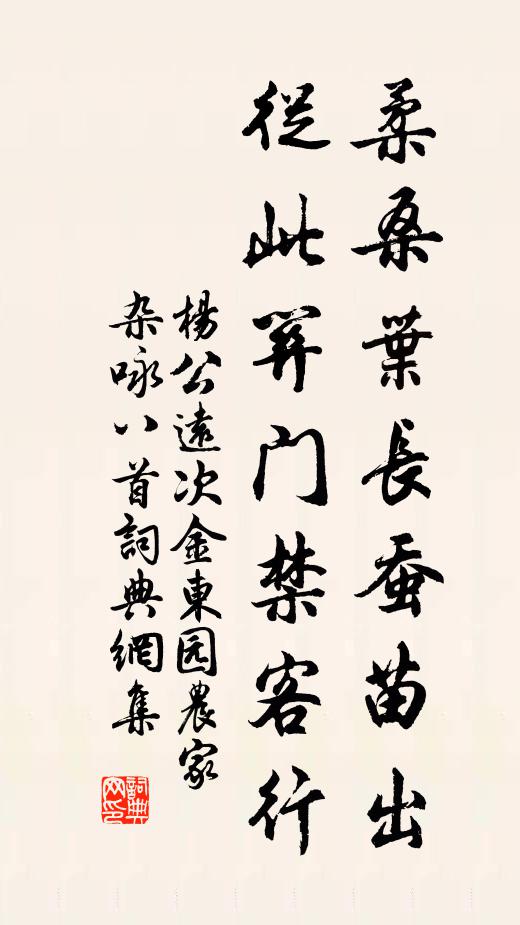 柔桑葉長蚕苗出
従此笄門禁客行
楊公遠次金東园農家
杂咏八首詞典網集
詞典
网印